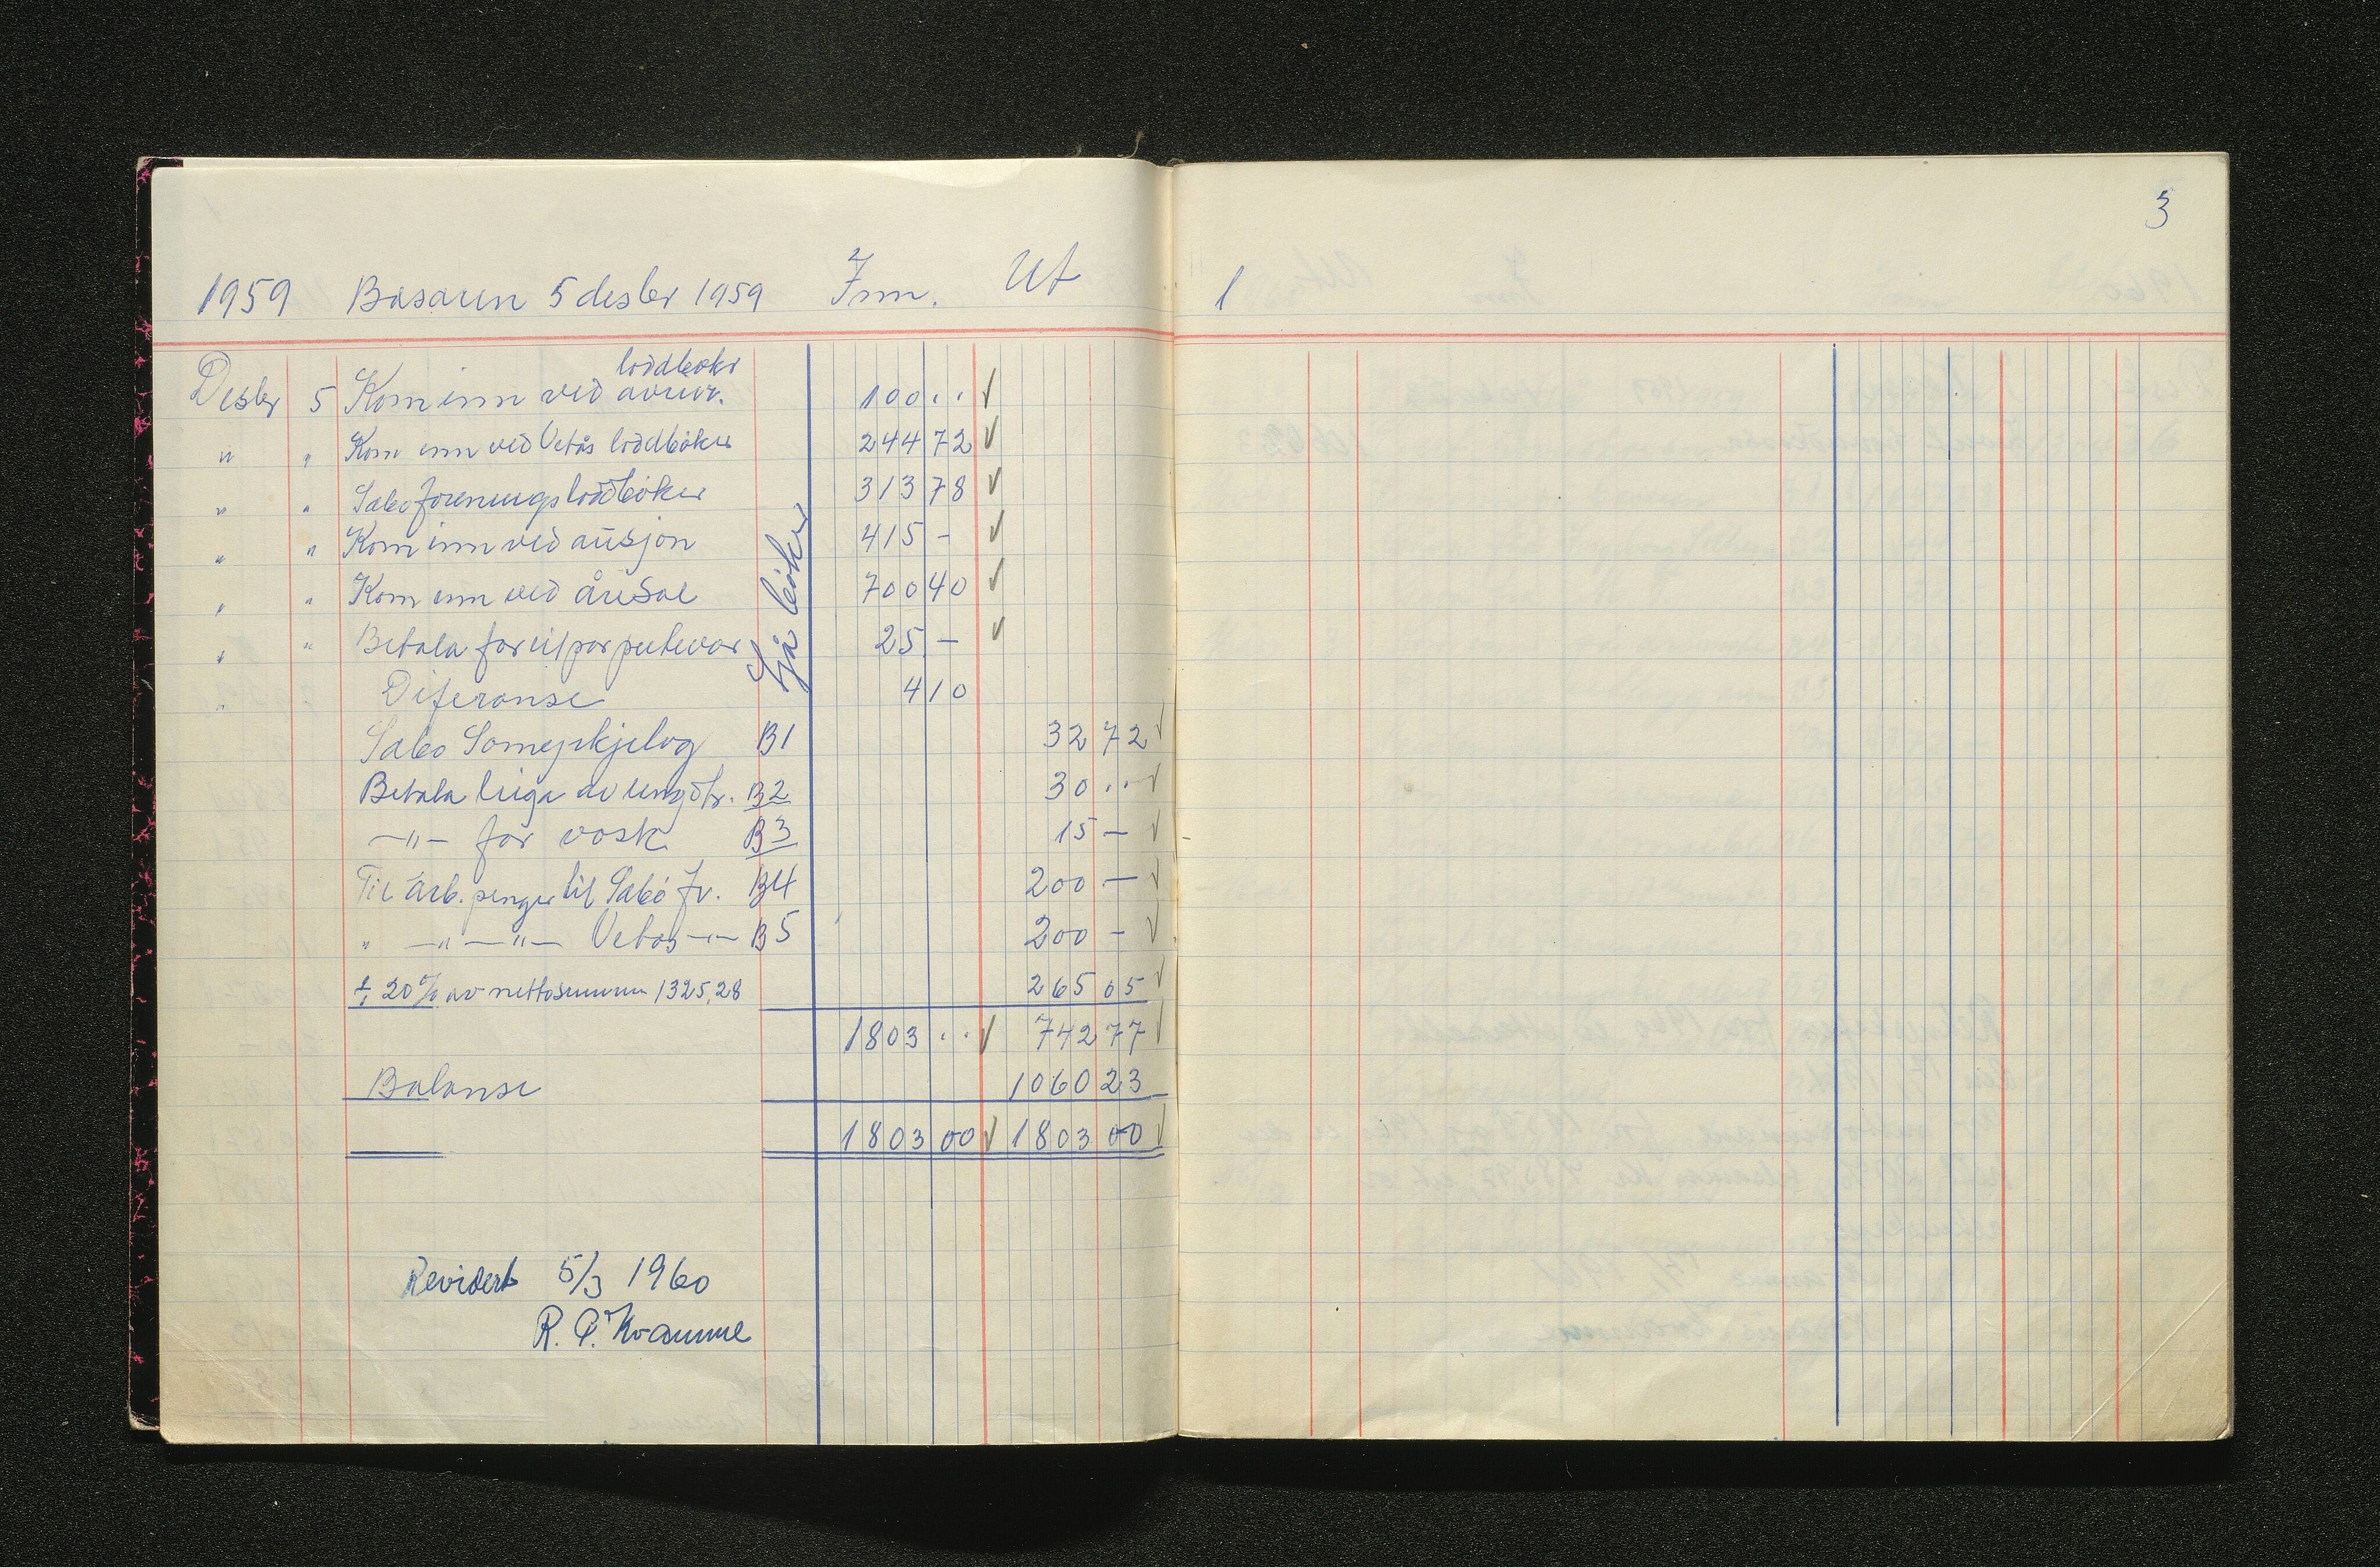 1959 Basaren 5 desbr 1959 Inn. Ut
loddbøkr
Desbr 5 Kom inn ved 100..
" " Kom inn ved Vetås loddbøker 244 72
" " Sabø forenings loddbøker 313 78
" " Kom inn ved auksjon 415 -
" " Kom inn ved åresal 700 40
" " Betala for eit par putevar 25 -
" Diferanse 4 10
Sjå bøker
Sabø B1 32 72
Betala liga av ungd.h. B2 30 ..
-"- for vask B3 15 -
Til arb. penger til Sabø fr. B4 200 -
" -"-"- Vetås -"- B5 200 -
÷ 20% av nettosummen 1325,28 265 05
1803 .. 742 77
Balanse 1060 23
1803 00 1803 00
Revidert 5/3 1960
R. Q. Kvamme
3
1